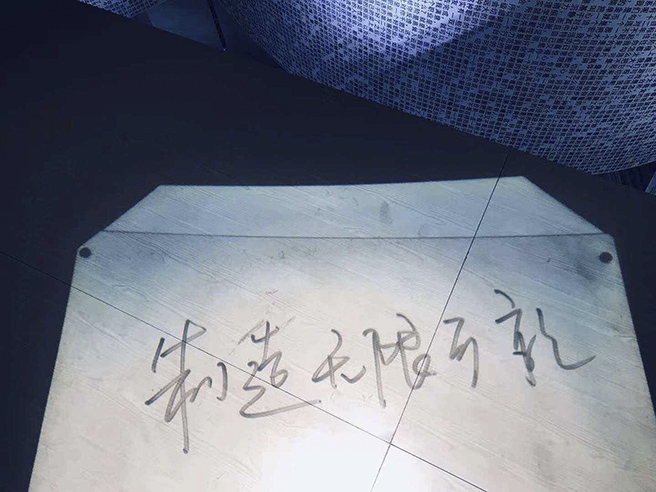 制造无限可能